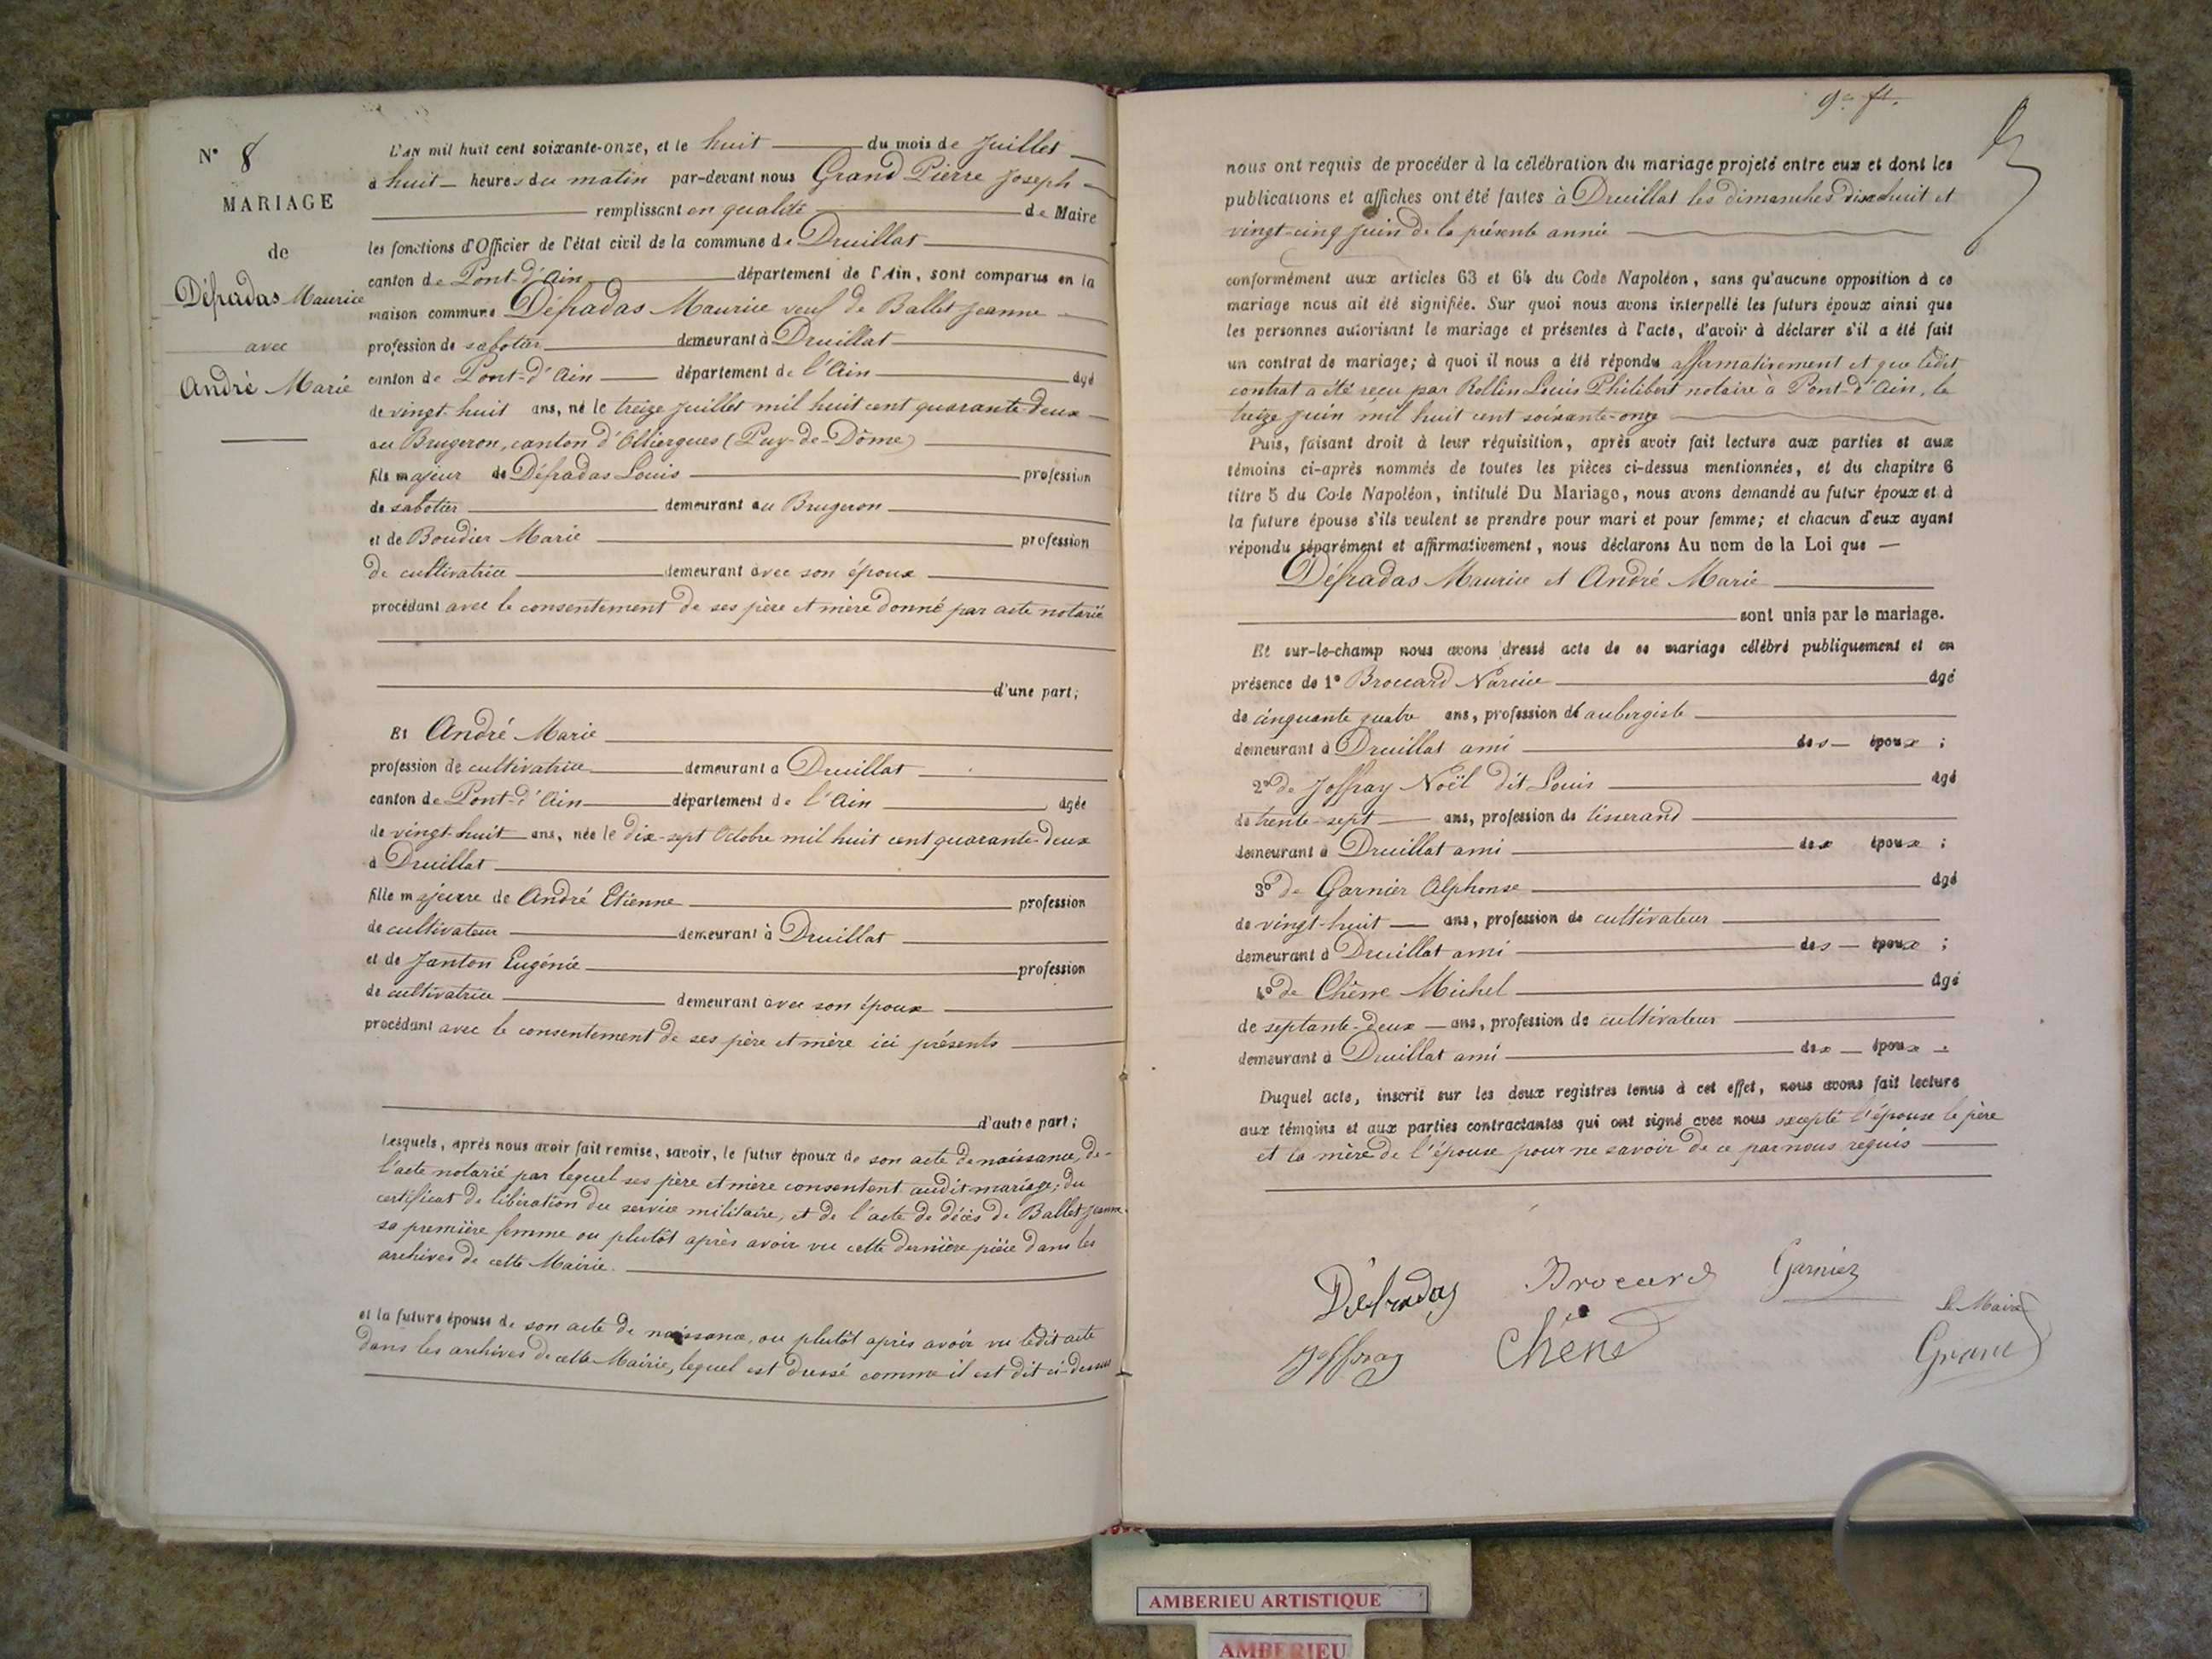 N° 8
MARIAGE
de
Défradas Maurice
avec
André Marie
L'an mil huit cent soixante-onze, et le huit du mois de Juillet
à huit heures du matin par-devant nous Grand Pierre Joseph
remplissant en qualité de Maire
les fonctions d'Officier de l'état civil de la commune de Druillat
canton de Pont-d'Ain département de l'Ain, sont comparus en la
maison commune Défradas Maurice veuf de Ballet Jeanne
profession de sabotier demeurant à Druillat
canton de Pont-d'Ain département de l'Ain âgé
de vingt huit ans, né le treize juillet mil huit cent quarante deux
au Brugeron, canton d'Olliergues (Puy-de-Dôme)
fils majeur de Défradas Louis profession
de sabotier demeurant au Brugeron
et de Boudier Marie profession
de cultivatrice demeurant avec son époux
procédant avec le consentement de ses père et mère donné par acte notarié
d'une part;
Et André Marie
profession de cultivatrice demeurant à Druillat
canton de Pont-d'Ain département de l'Ain âgée
de vingt-huit ans, née le dix-sept Octobre mil huit cent quarante-deux
à Druillat
fille majeure de André Etienne profession
de cultivateur demeurant à Druillat
et de Janton Eugénie profession
de cultivatrice demeurant avec son époux
procédant avec le consentement de ses père et mère ici présents
d'autre part;
Lesquels, après nous avoir fait remise, savoir, le futur époux de son acte de naissance, de
l'acte notarié par lequel ses père et mère consentent audit mariage; du
certificat de libération du service militaire, et de l'acte de décès de Ballet Jeanne
sa première femme ou plutôt après avoir vu cette dernière pièce dans les
archives de cette Mairie.
et la future épouse de son acte de naissance, ou plutôt après avoir vu ledit acte
dans les archives de cette Mairie, lequel est dressé comme il est dit ci-dessus
nous ont requis de procéder à la célébration du mariage projeté entre eux et dont les
publications et affiches ont été faites à Druillat les dimanches dix-huit et
vingt-cinq juin de la présente année
conformément aux articles 63 et 64 du Code Napoléon, sans qu'aucune opposition à ce
mariage nous ait été signifiée. Sur quoi nous avons interpellé les futurs époux ainsi que
les personnes autorisant le mariage et présentes à l'acte, d'avoir à déclarer s'il a été fait
un contrat de mariage; à quoi il nous a été répondu affirmativement et que ledit
contrat a été reçu par Rollin Louis Philibert notaire à Pont-d'Ain, le
treize juin mil huit cent soixante-onze
Puis, faisant droit à leur réquisition, après avoir fait lecture aux parties et aux
témoins ci-après nommés de toutes les pièces ci-dessus mentionnées, et du chapitre 6
titre 5 du Code Napoléon, intitulé Du Mariage, nous avons demandé au futur époux et à
la future épouse s'ils veulent se prendre pour mari et pour femme; et chacun d'eux ayant
répondu séparément et affirmativement, nous déclarons Au nom de la Loi que
Défradas Maurice et André Marie
sont unis par le mariage.
Et sur-le-champ nous avons dressé acte de ce mariage célébré publiquement et en
présence de 1° Broccard Narcise âgé
de cinquante quatre ans, profession d'aubergiste
demeurant à Druillat ami des époux;
2° de Joffray Noël dit Louis âgé
de trente-sept ans, profession de tisserand
demeurant à Druillat ami des époux;
3° de Garnier Alphonse âgé
de vingt-huit ans, profession de cultivateur
demeurant à Druillat ami des époux;
4° de Chêne Michel âgé
de septante-deux ans, profession de cultivateur
demeurant à Druillat ami des époux.
Duquel acte, inscrit sur les deux registres tenus à cet effet, nous avons fait lecture
aux témoins et aux parties contractantes qui ont signé avec nous excepté l'épouse le père
et la mère de l'épouse pour ne savoir de ce par nous requis
Défradas Brocard Garnier
le Maire
Joffray Chêne Grand
AMBERIEU ARTISTIQUE
AMBERIEU